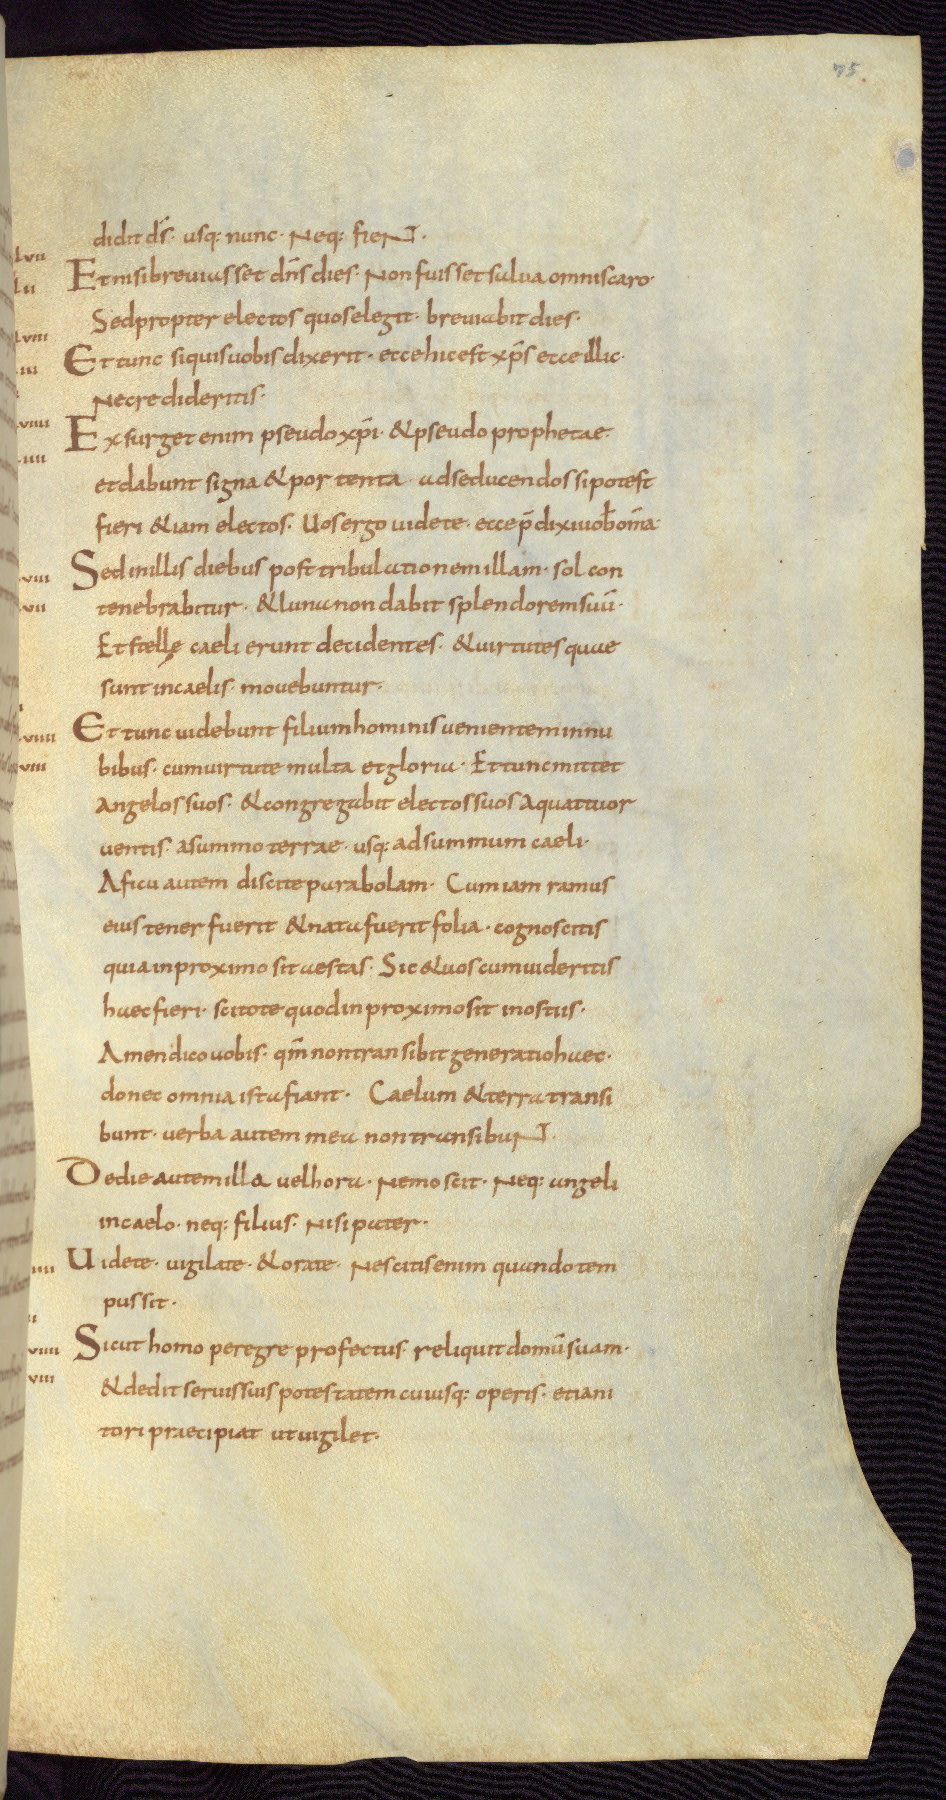 75
didit d̄s· usq: nunc· Neq: fient·
Et nisi breviasset dn̄s dies· Non fuisset salva omnis caro·
Sed propter electos quos elegit· breviabit dies·
Et tunc si quis vobis dixerit· ecce hic est xp̄s ecce illic·
Ne credideritis·
Exsurget enim pseudo xp̄i· & pseudo prophetae·
et dabunt signa & portenta ad seducendos si potest
fieri & iam electos· Vos ergo videte· ecce p̄dixi vob̄ om̄a·
Sed in illis diebus post tribulationem illam· sol con
tenebrabitur· & luna non dabit splendorem suū·
Et stellę caeli erunt decidentes· & virtutes quae
sunt in caelis· movebuntur·
Et tunc videbunt filium hominis venientem in nu
bibus· cum virtute multa et gloria· Et tunc mittet
angelos suos· & congregabit electos suos a quattuor
ventis· a summo terrae· usq: ad summum caeli·
A ficu autem discite parabolam· Cum iam ramus
eius tener fuerit & nata fuerit folia· cognoscitis
quia in proximo sit aestas· Sic & vos cum videritis
haec fieri· scitote quod in proximo sit in ostiis·
Amen dico vobis· qm̄ non transibit generatio haec·
donec omnia ista fiant· Caelum & terra transi
bunt· verba autem mea non transibunt·
De die autem illa vel hora· Nemo scit· Neq: angeli
in caelo· neq: filius· Nisi pater·
Videte· vigilate· & orate· Nescitis enim quando tem
pus sit·
Sicut homo peregre profectus reliquit domū suam·
& dedit servis suis potestatem cuiusq: operis· et iani
tori praecipiat ut vigilet·